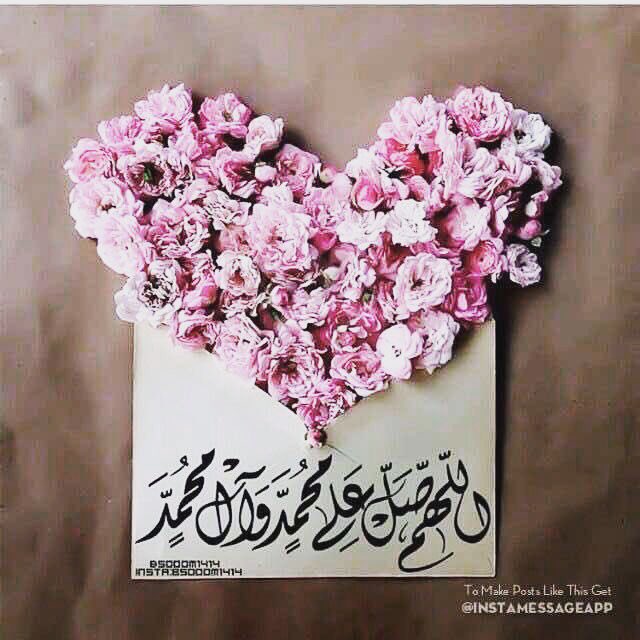 اللّهم صَلّ عَلى محُمدٍَّ وَآل محُمدَّ
BSOOOM1414
INSTA:BSOOOM1414
To Make Posts Like This Get
@INSTAMESSAGEAPP